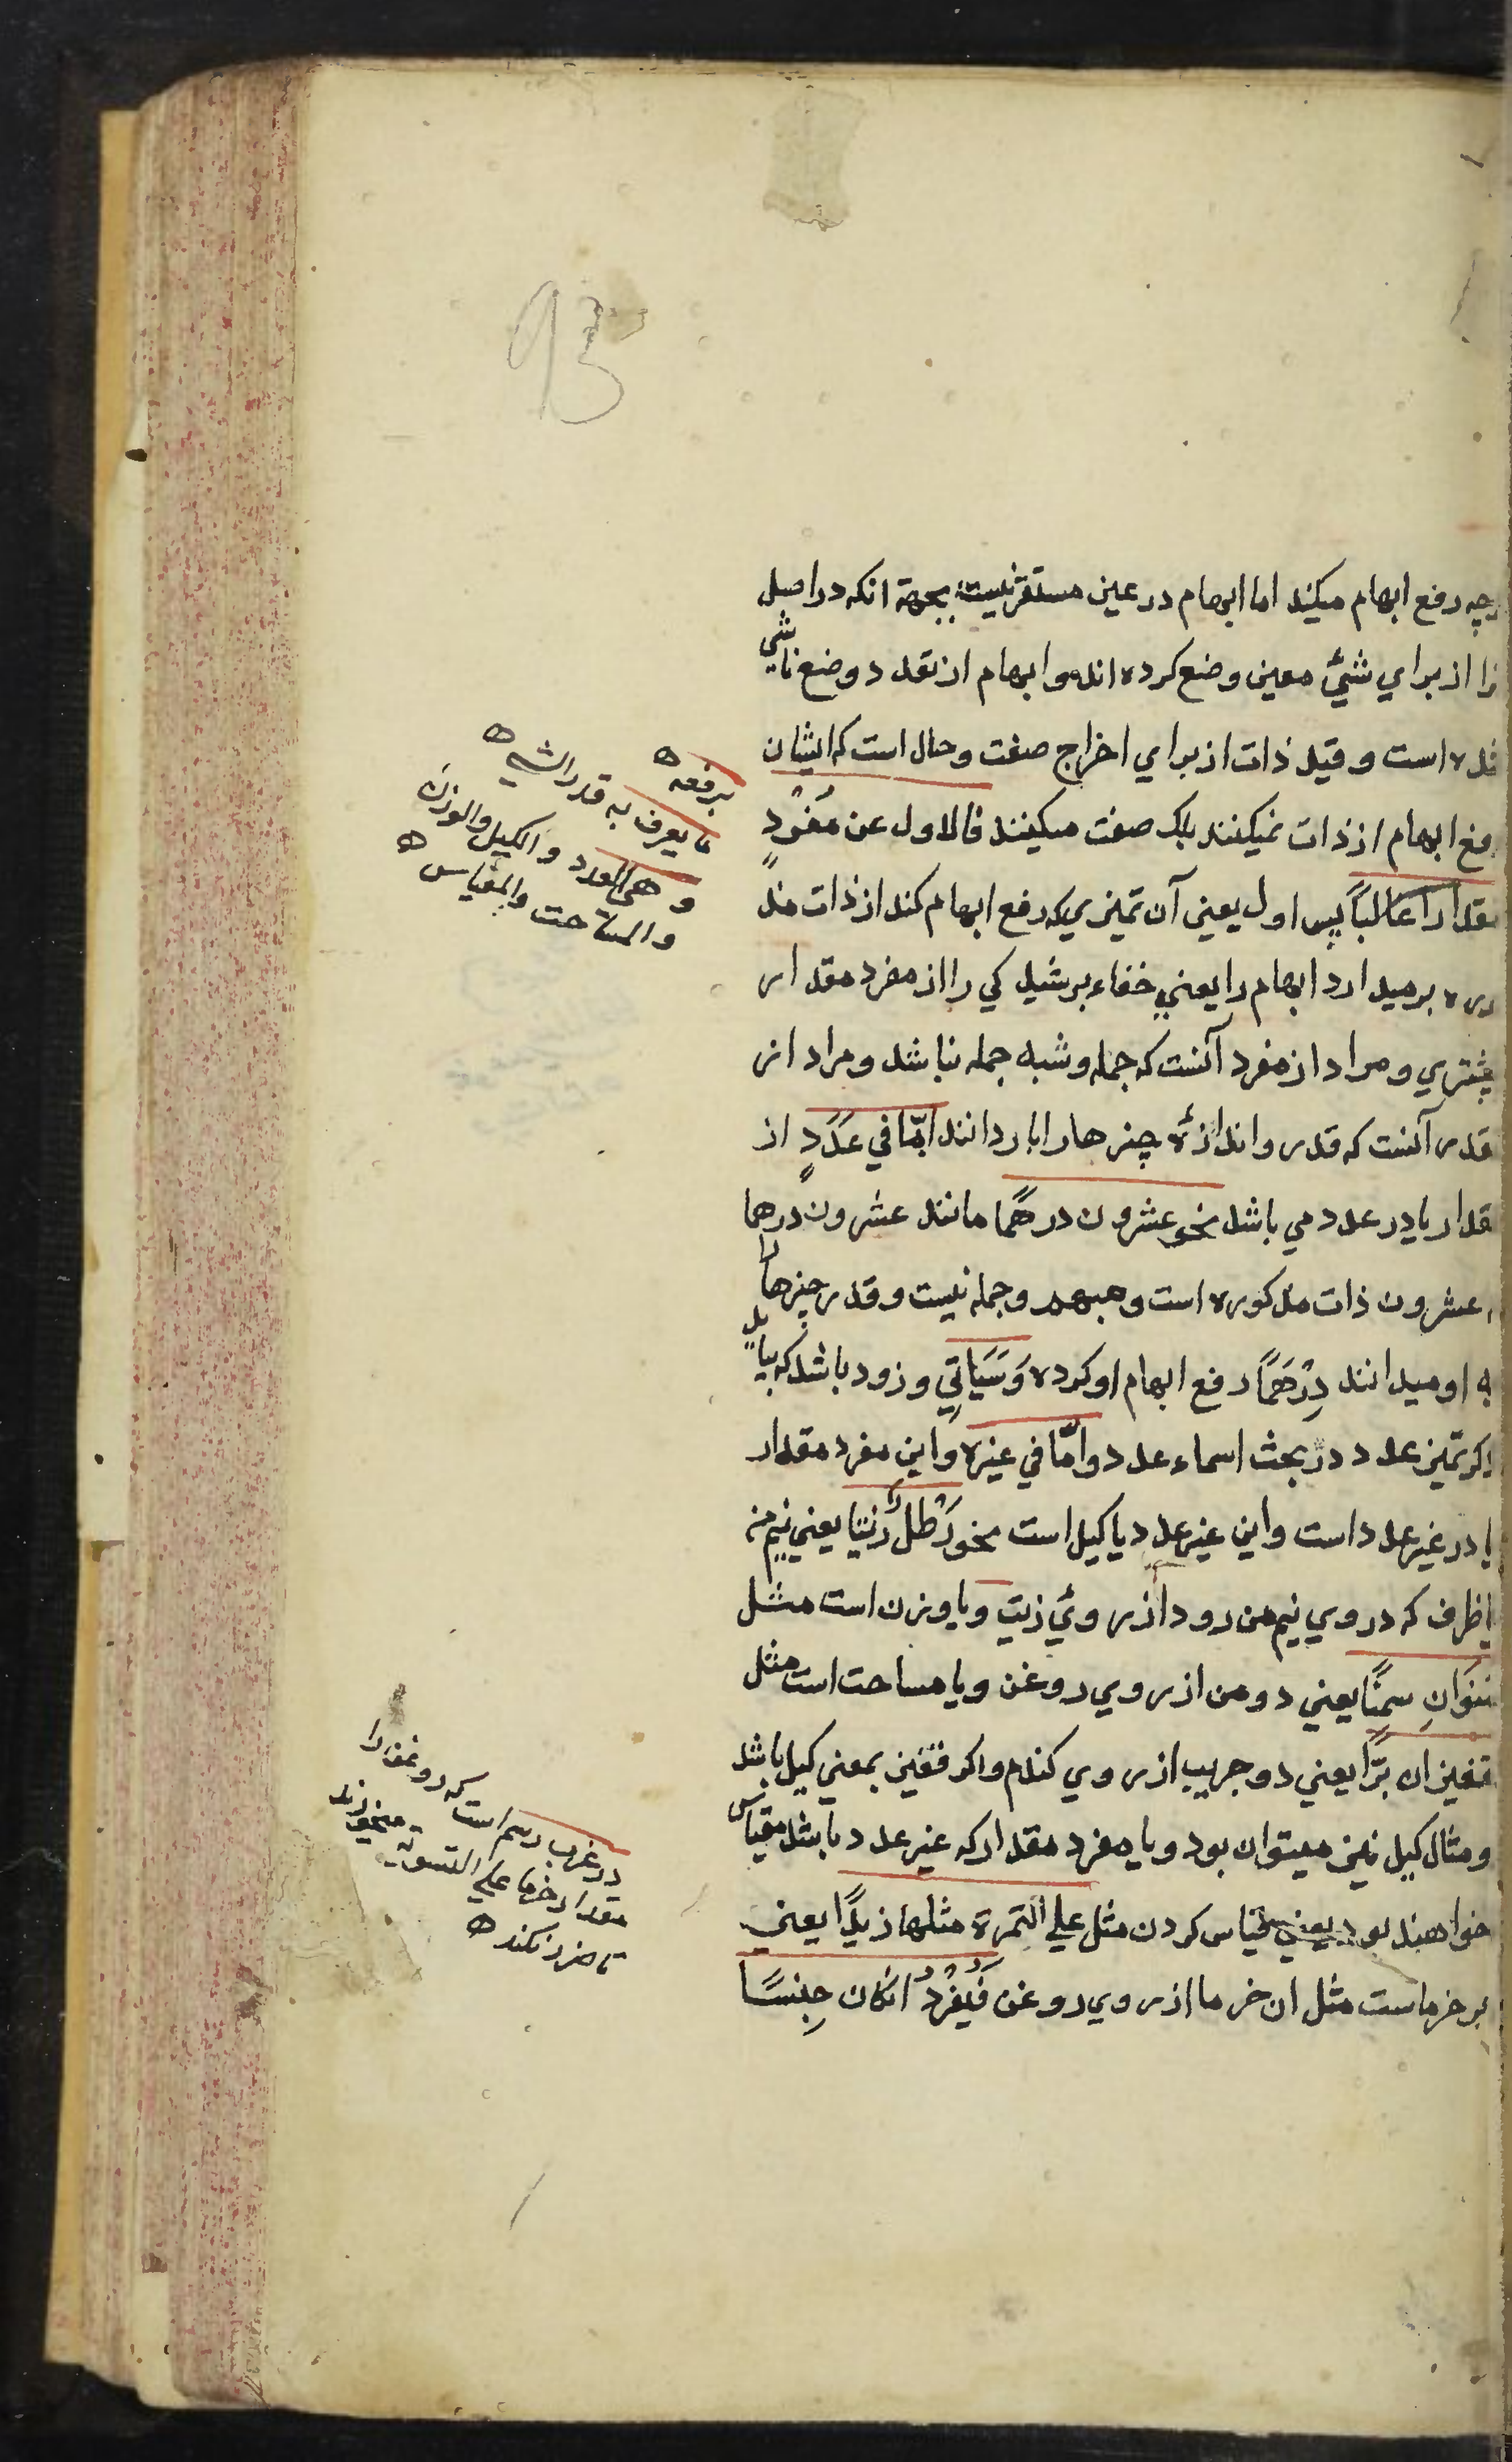 93
رچه رفع ابهام میکند اما ابهام در عین مستقر نیست بجهة انکه در اصل
را از برای شئ معین وضع کرده اند وابهام از تعدد وضع ناشی
شده است و قید ذات از برای اخراج صفت وحال است که ایشان
رفع ابهام از ذات نمیکنند بلک صفت میکینند فالاول عن مُفرَدٍ
مقدارٍ غالبًا پس اول یعنی آن تمیزی که رفع ابهام کند از ذات مذ
کوره برمیدارد ابهام را یعنی خفاء برشیدکی را از مفرد مقدار
بیشتری ومراد از مفرد آنست که جمله وشبه جمله نباشد ومراد از
مقدر آنست که قدر واندازۀ چیزها را بار دانند امّا فی عَدَدٍ از
مقدار یا در عدد می باشد نحو عشرون درهمًا مانند عشرون درهما
عشرون ذات مذکوره است ومبهم وجمله نیست وقدر چیزها را
به او میدانند دِرْهَمًا رفع ابهام او کرده وَسَیَاتِی وزود باشد که بیاید
ذکر تمیز عدد در بحث اسماء عدد وامّا فی غیره واین مفرد مقدار
یا در غیر عدد است واین غیر عدد یا کیل است نحو رَطْلٌ زیتا یعنی نیم من
یا ظرف که در وی نیم من رود از روئ زیت ویا وزن است مثل
منوَانِ سمنًا یعنی دو من از روی روغن ویا مساحت است مثل
قفیزان برًّا یعنی دو جریب از روی کندم واکر قفیز بمعنی کیل باشد
ومثال کیل نیز میتوان بود ویا مفرد مقدار که غیر عدد باشد مقیاس
خواهند بود یعنی قیاس کردن مثل علی التمرة مثلها زبدًا یعنی
بر خرماست مثل ان خرما از روی روغن فَیُفْرَدُ انکان جِنسًا
برفعه
ما یعرف به قدر الشیء
وهی العدد والکیل والوزن
والمساحت والمقیاس
در عرب رسم است که روغن را
مقدار خرما علی التسویه میخورند
تا ضرر نکند